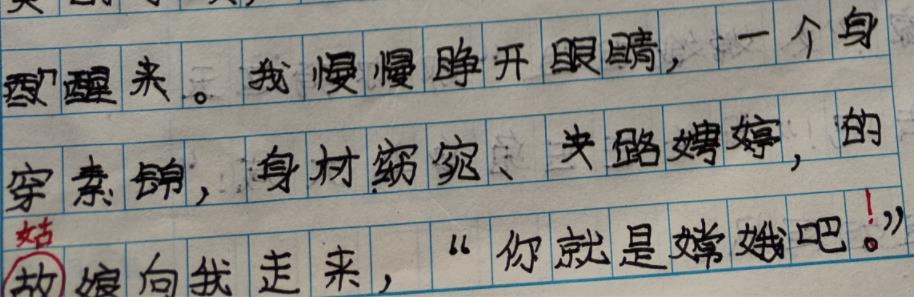 醒来。我慢慢睁开眼睛，一个身
穿素锦，身材窈窕、夹路娉婷，的
姑
故娘向我走来，“你就是嫦娥吧！。”